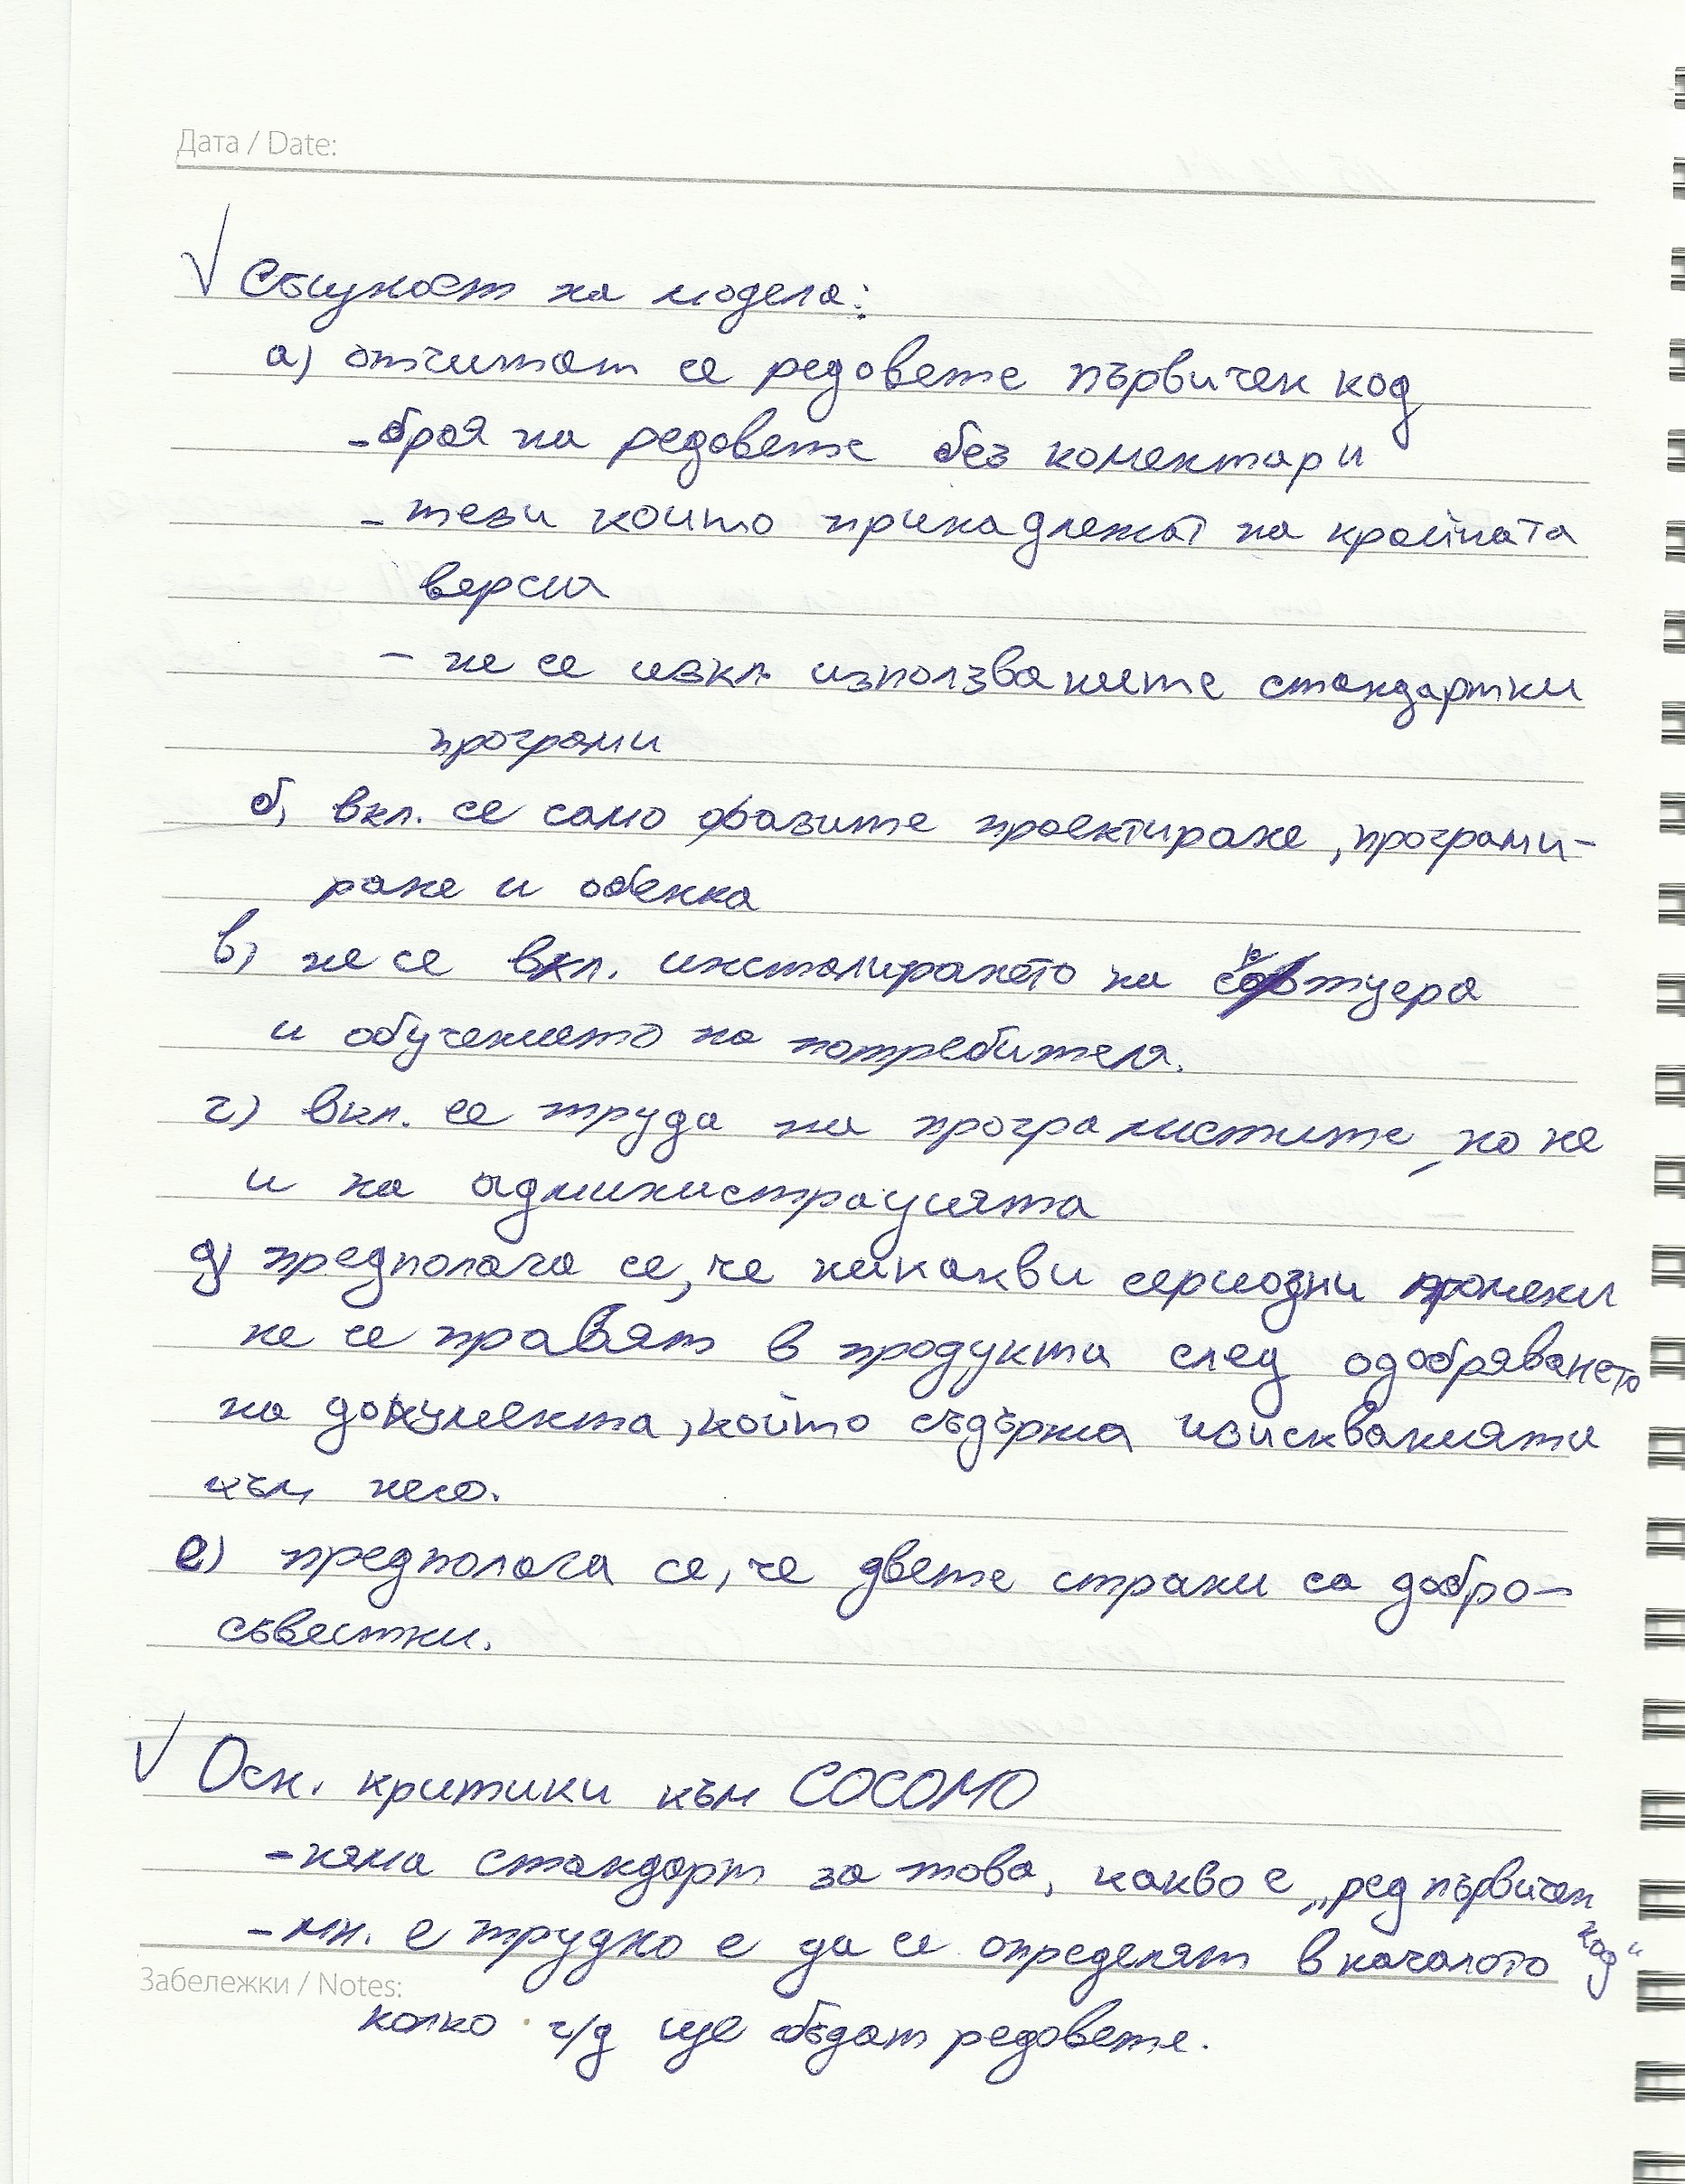 Дата / Date:
√ Същност на модела:
а) отчитат се редовете първичен код
- броя на редовете без коментари
- тези които принадлежат на крайната
версия
- не се изкл. използваните стандартни
програми
б) вкл. се само фазите проектиране, програми-
ране и оценка
в) не се вкл. инсталирането на софтуера
и обучението на потребителя.
г) вкл. се труда на програмистите, но не
и на администрацията
д) предполага се, че никакви сериозни промени
не се правят в продукта след одобряването
на документа, който съдържа изискванията
към него.
е) предполага се, че двете страни са добро-
съвестни.
√ Осн. критики към COCOMO
- няма стандарт за това, какво е „ред първичен
код“
- мн. е трудно е да се определят в началото
Забележки / Notes:
колко г/д ще бъдат редовете.